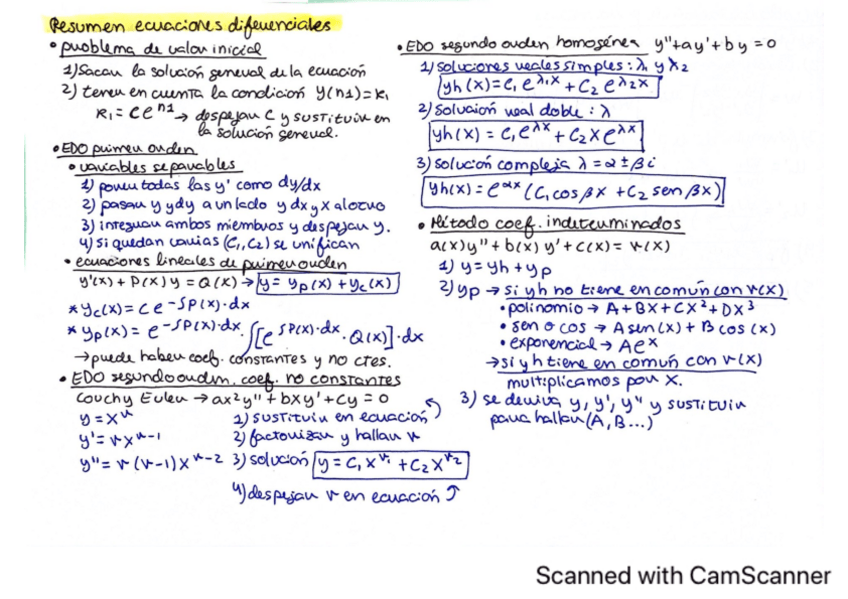 Resumen ecuaciones diferenciales
• problema de valor inicial
1) Sacar la solución general de la ecuación
2) tener en cuenta la condición y(n1) = k1
k1 = Ce^n1 → despejar C y sustituir en
la solución general.
• EDO primer orden
• variables separables
1) poner todas las y' como dy/dx
2) pasar y y dy a un lado y dx y x al otro
3) integrar ambos miembros y despejar y.
4) si quedan varias (C1, C2) se unifican
• ecuaciones lineales de primer orden
y'(x) + P(x) y = Q(x) → y = yp(x) + yc(x)
* yc(x) = C e^-∫P(x)·dx
* yp(x) = e^-∫P(x)·dx · ∫[e^∫P(x)·dx · Q(x)]·dx
→ puede haber coef. constantes y no ctes.
• EDO segundo orden. coef. no constantes
Couchy Euler → ax²y'' + bxy' + cy = 0
y = x^r 1) sustituir en ecuación
y' = r x^r-1 2) factorizar y hallar r
y'' = r (r-1) x^r-2 3) solución y = C1 x^r1 + C2 x^r2
4) despejar r en ecuación ↑
• EDO segundo orden homogénea y'' + ay' + by = 0
1) soluciones reales simples: λ1 y λ2
yh(x) = C1 e^λ1x + C2 e^λ2x
2) solución real doble: λ
yh(x) = C1 e^λx + C2 x e^λx
3) solución compleja λ = α ± βi
yh(x) = e^αx (C1 cos βx + C2 sen βx)
• Método coef. indeterminados
a(x)y'' + b(x) y' + c(x) = r(x)
1) y = yh + yp
2) yp → si yh no tiene en común con r(x)
• polinomio → A + BX + CX² + DX³
• sen o cos → A sen(x) + B cos(x)
• exponencial → Ae^x
→ si yh tiene en común con r(x)
multiplicamos por x.
3) se deriva y, y', y'' y sustituir
para hallar (A, B...)
Scanned with CamScanner